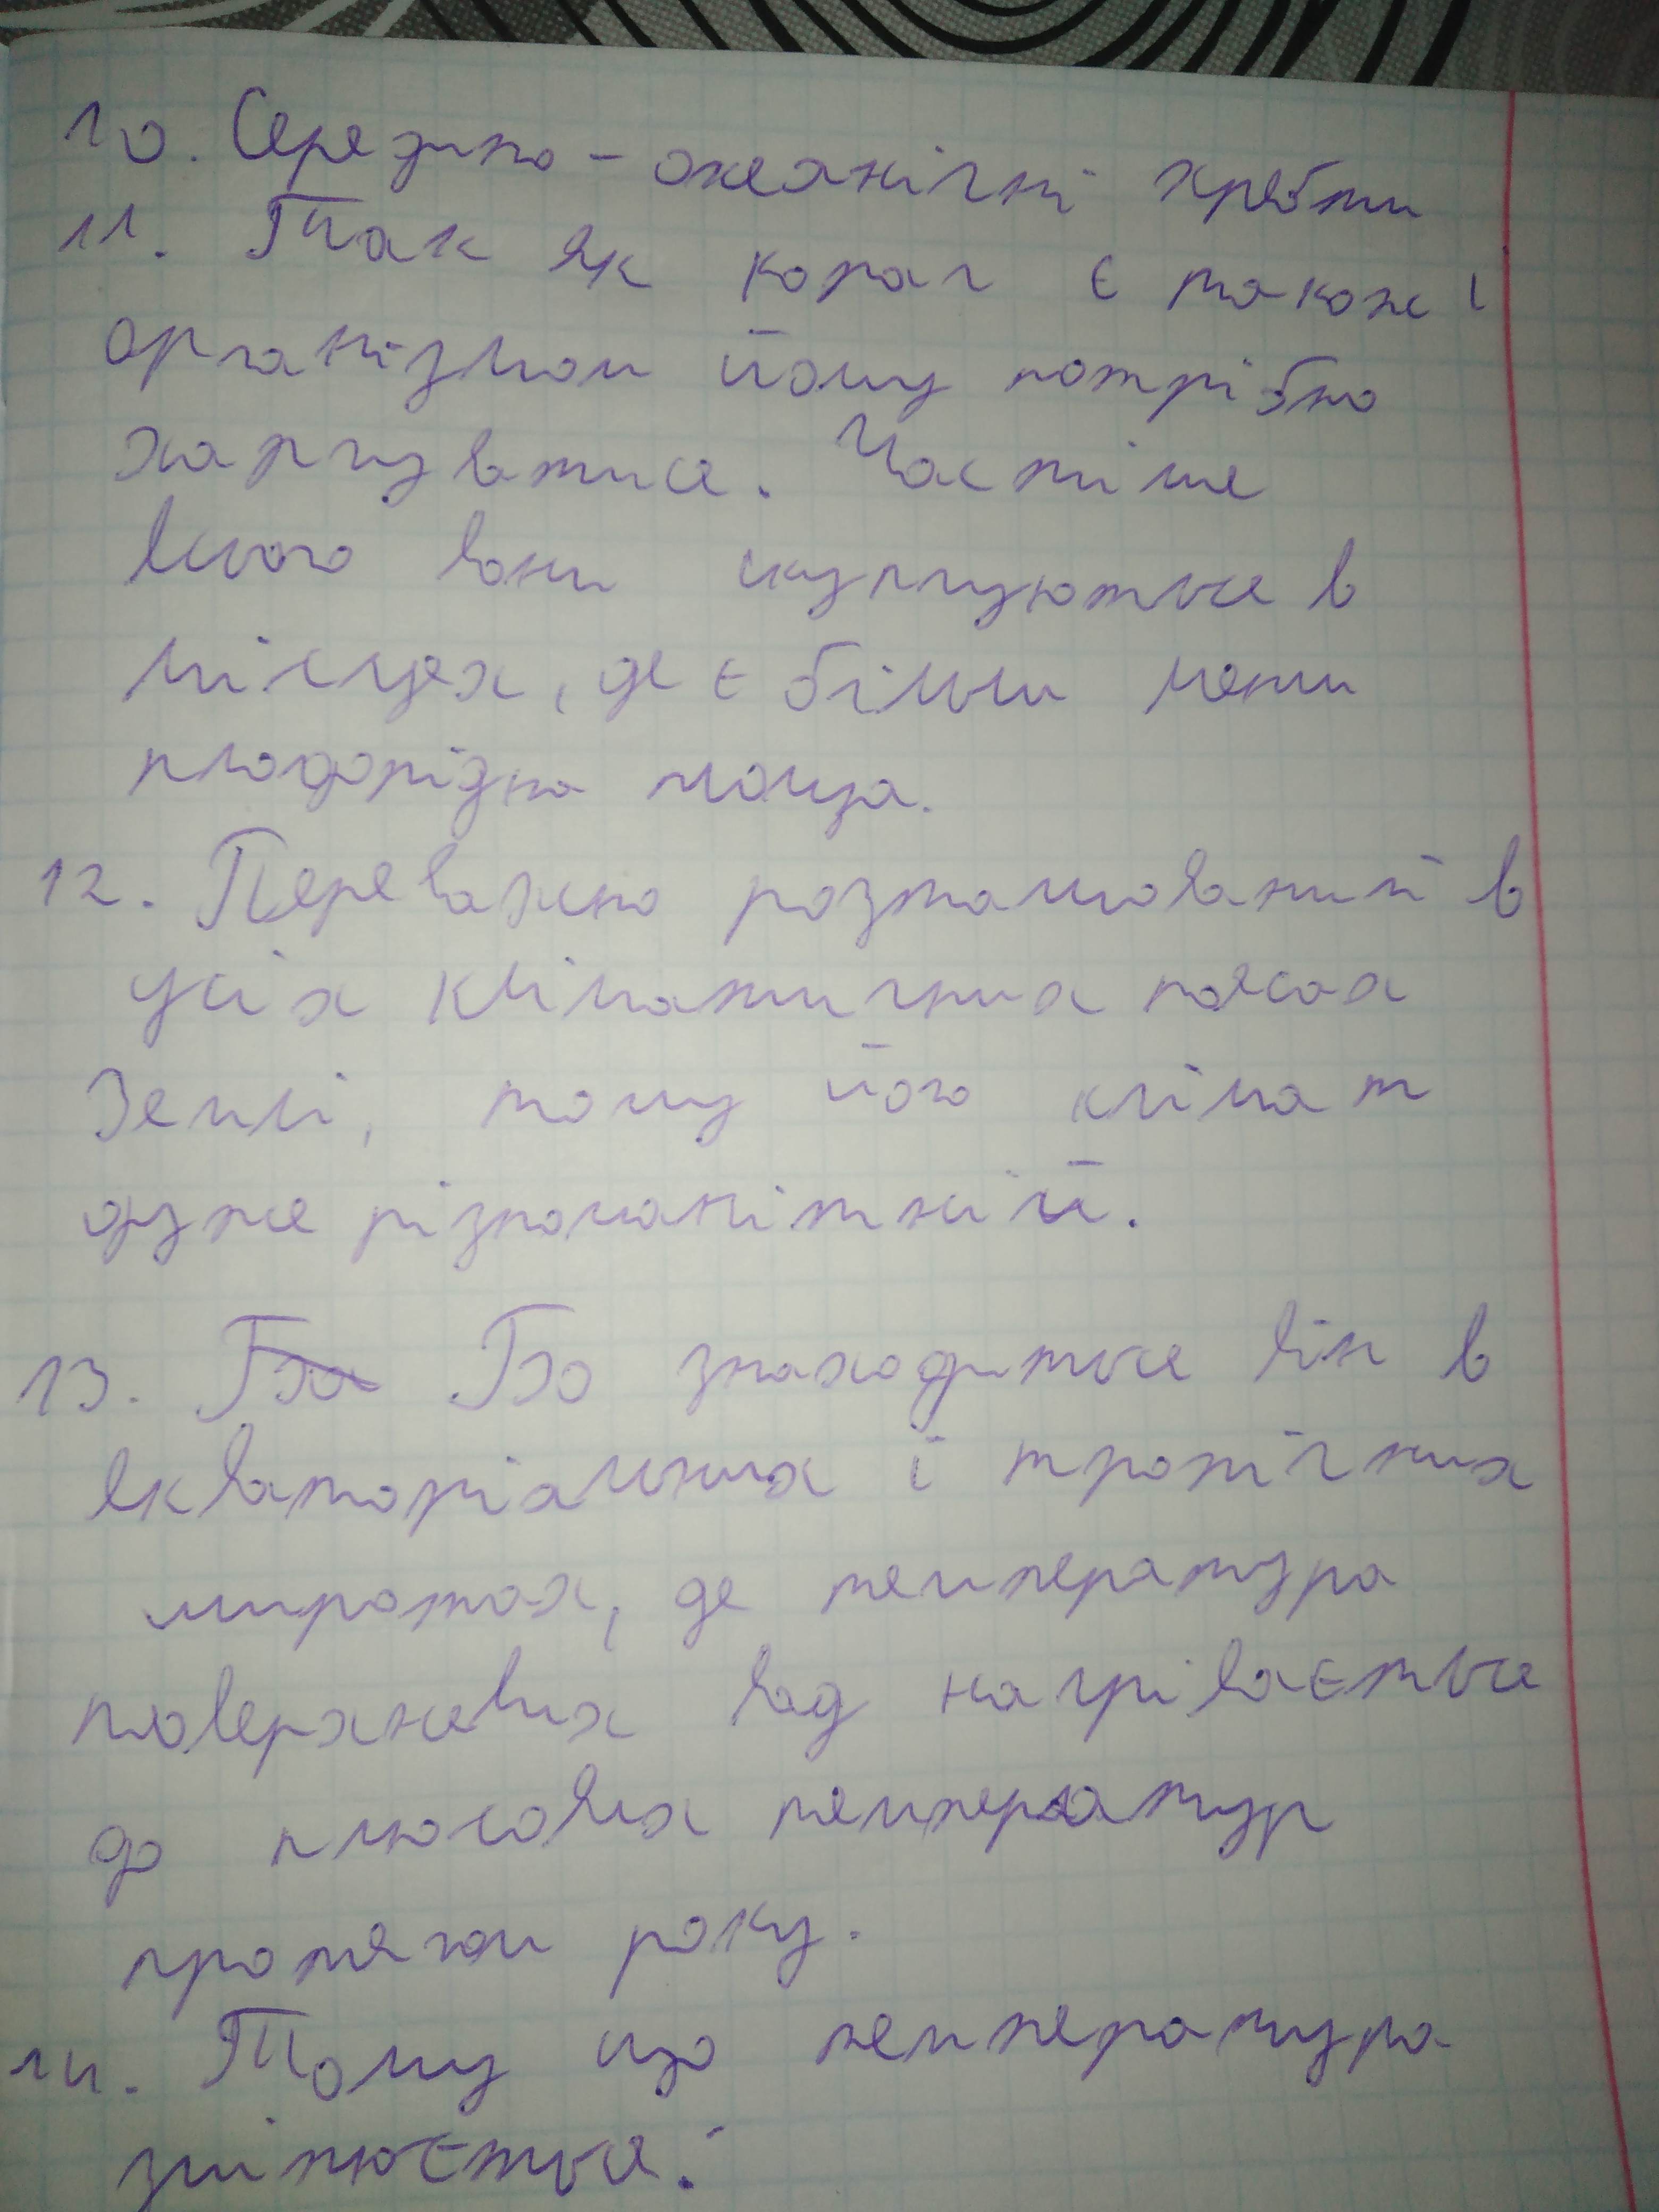 10. Середино-океанічні хребти
11. Так як корал є також і
організмом йому потрібно
харчуватися. Частіше
всього вони скупчуються в
місцях, де є більш менш
плодорідна площа.
12. Переважно розташований в
усіх кліматичних поясах
Землі, тому його клімат
дуже різноманітній.
13. Бо знаходиться він в
екваторіальних і тропічних
широтах, де температура
поверхневих вод нагрівається
до плюсових температур
протягом року.
14. Тому що температура
змінюється.